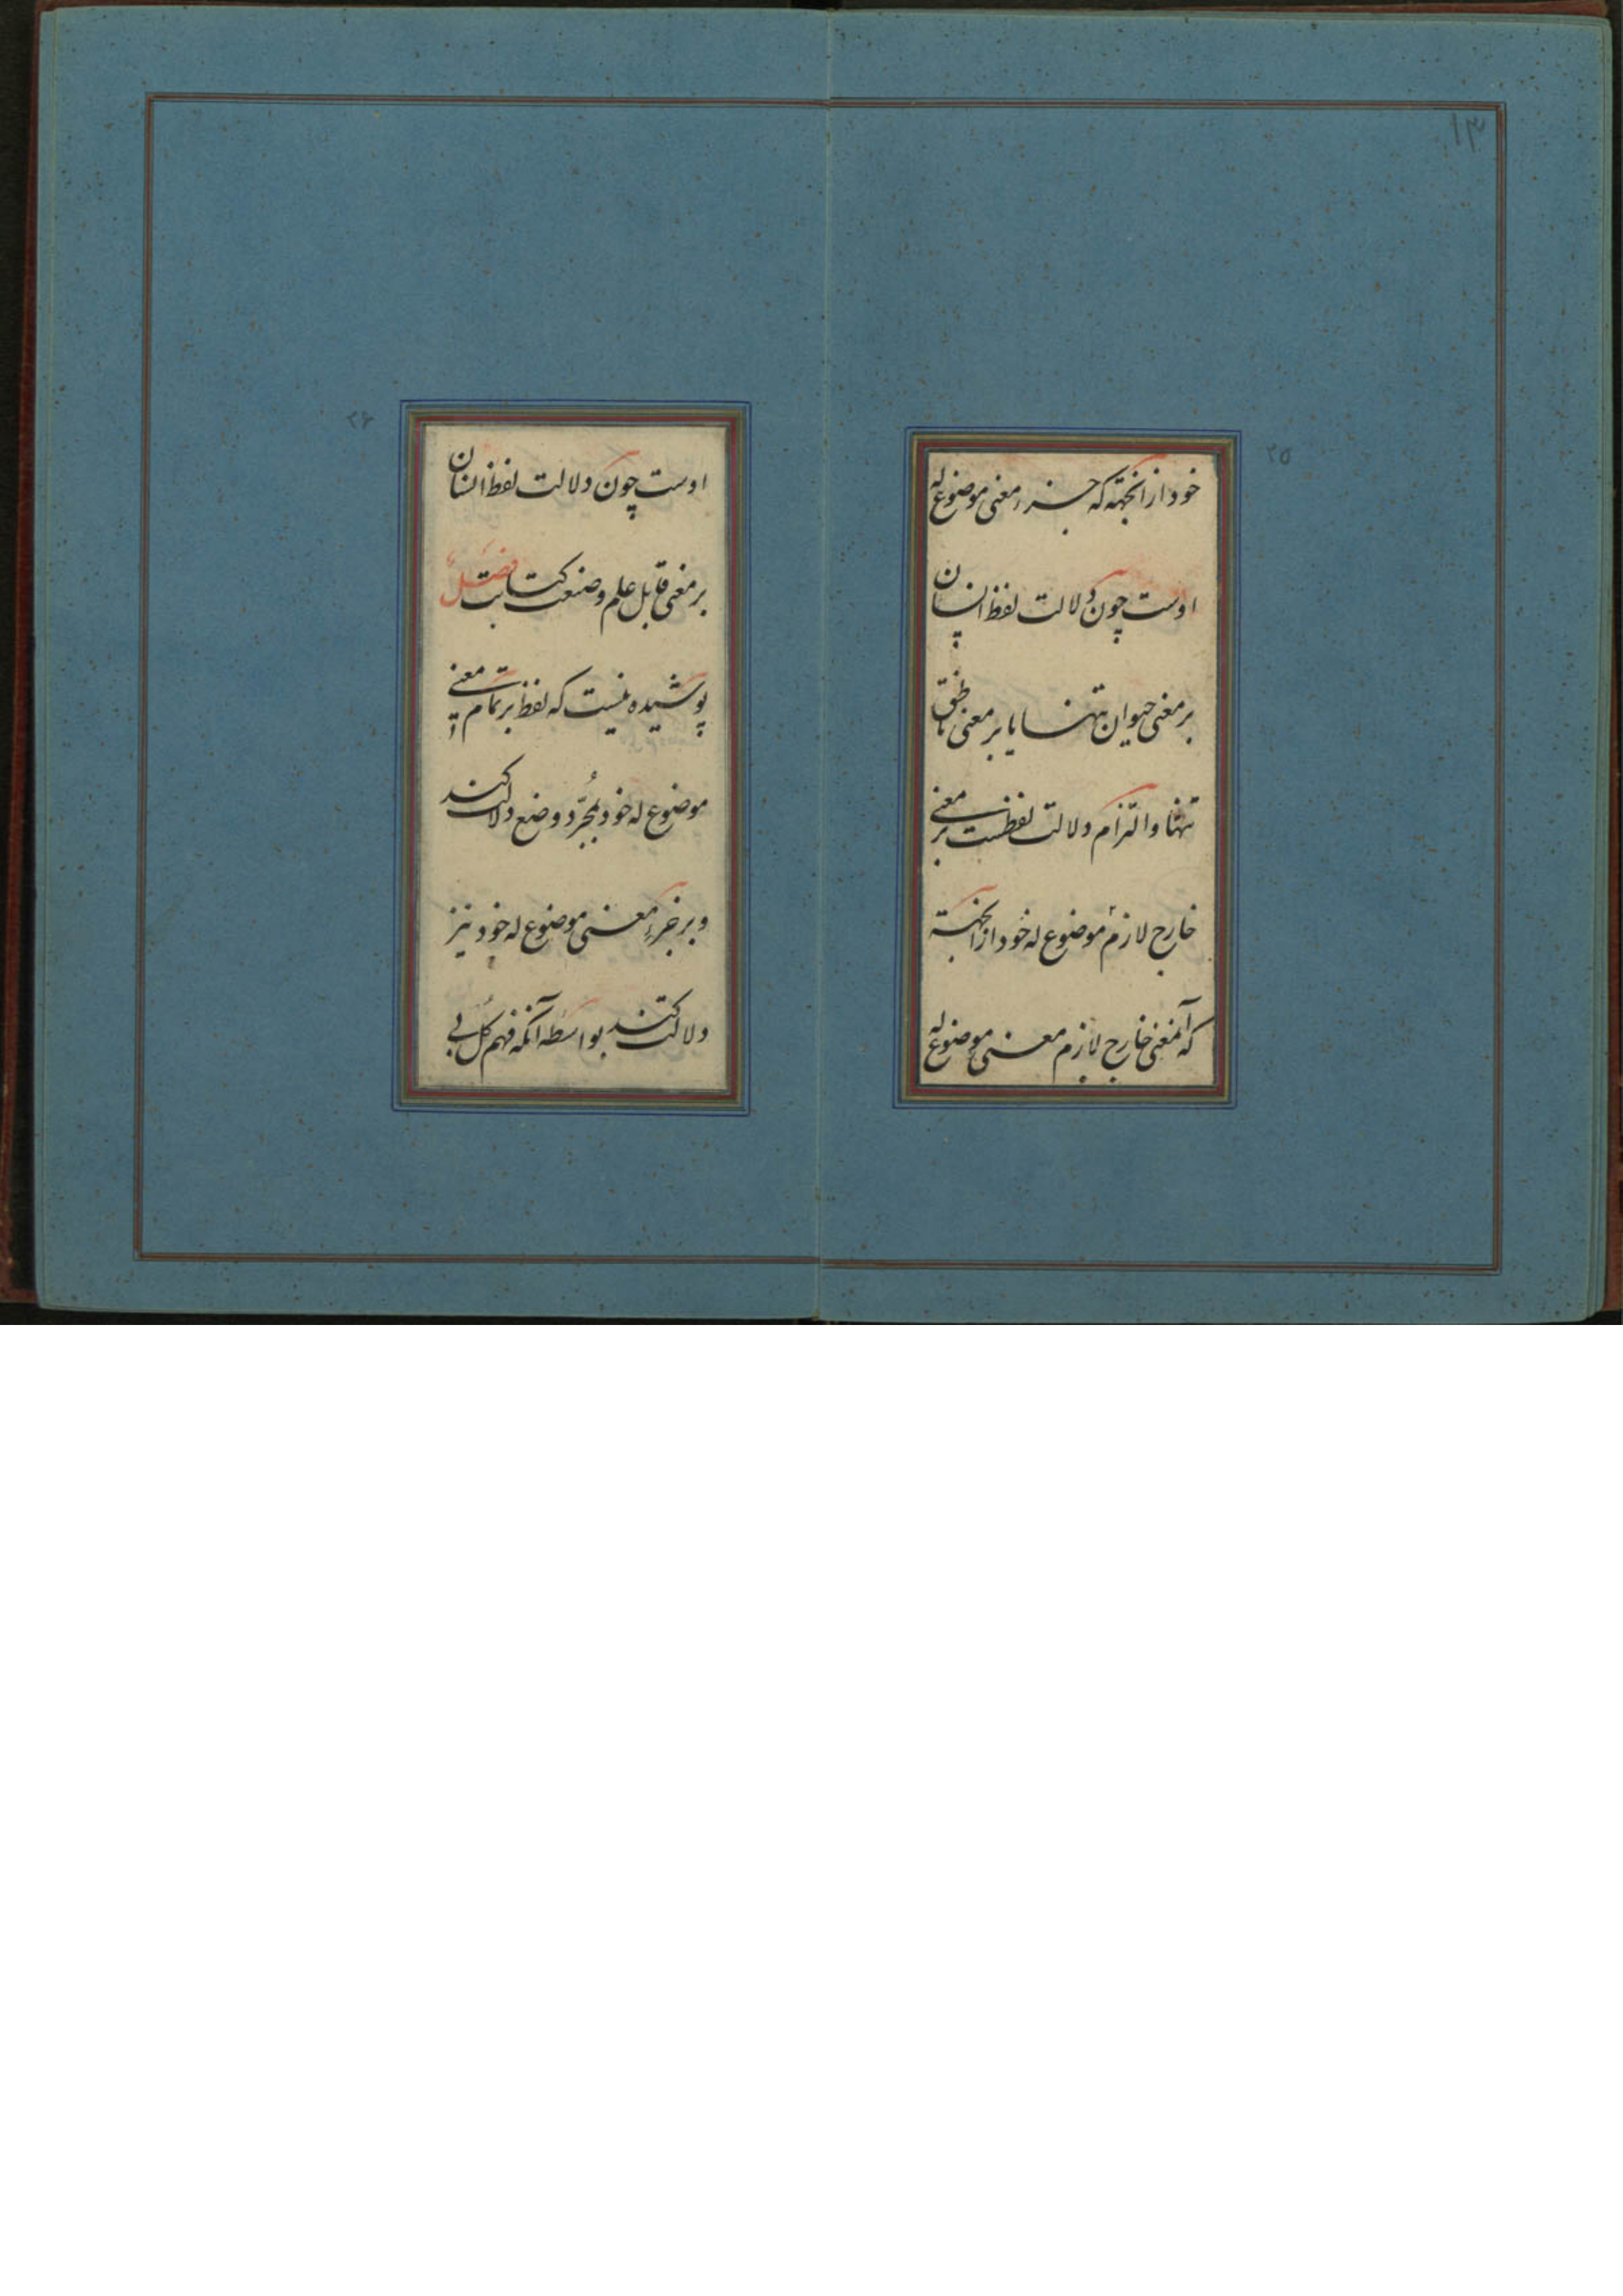 ۱۳
۲۵
خود از انجهة که جزء معنی موضوع له
اوست چون دلالت لفظ انسان
بر معنی حیوان تنها یا بر معنی ناطق
تنها و التزام دلالت لفظست بر معنی
خارج لازم موضوع له خود از انجهة
که آنمعنی خارج لازم معنی موضوع له
۲۶
اوست چون دلالت لفظ انسان
بر معنی قابل علم و صنعت کتابت فصل
پوشیده نیست که لفظ بر تمام معنی
موضوع له خود بمجرّد وضع دلالت کند
و بر جزءِ معنی موضوع له خود نیز
دلالت کند بواسطه آنکه فهم کل بی